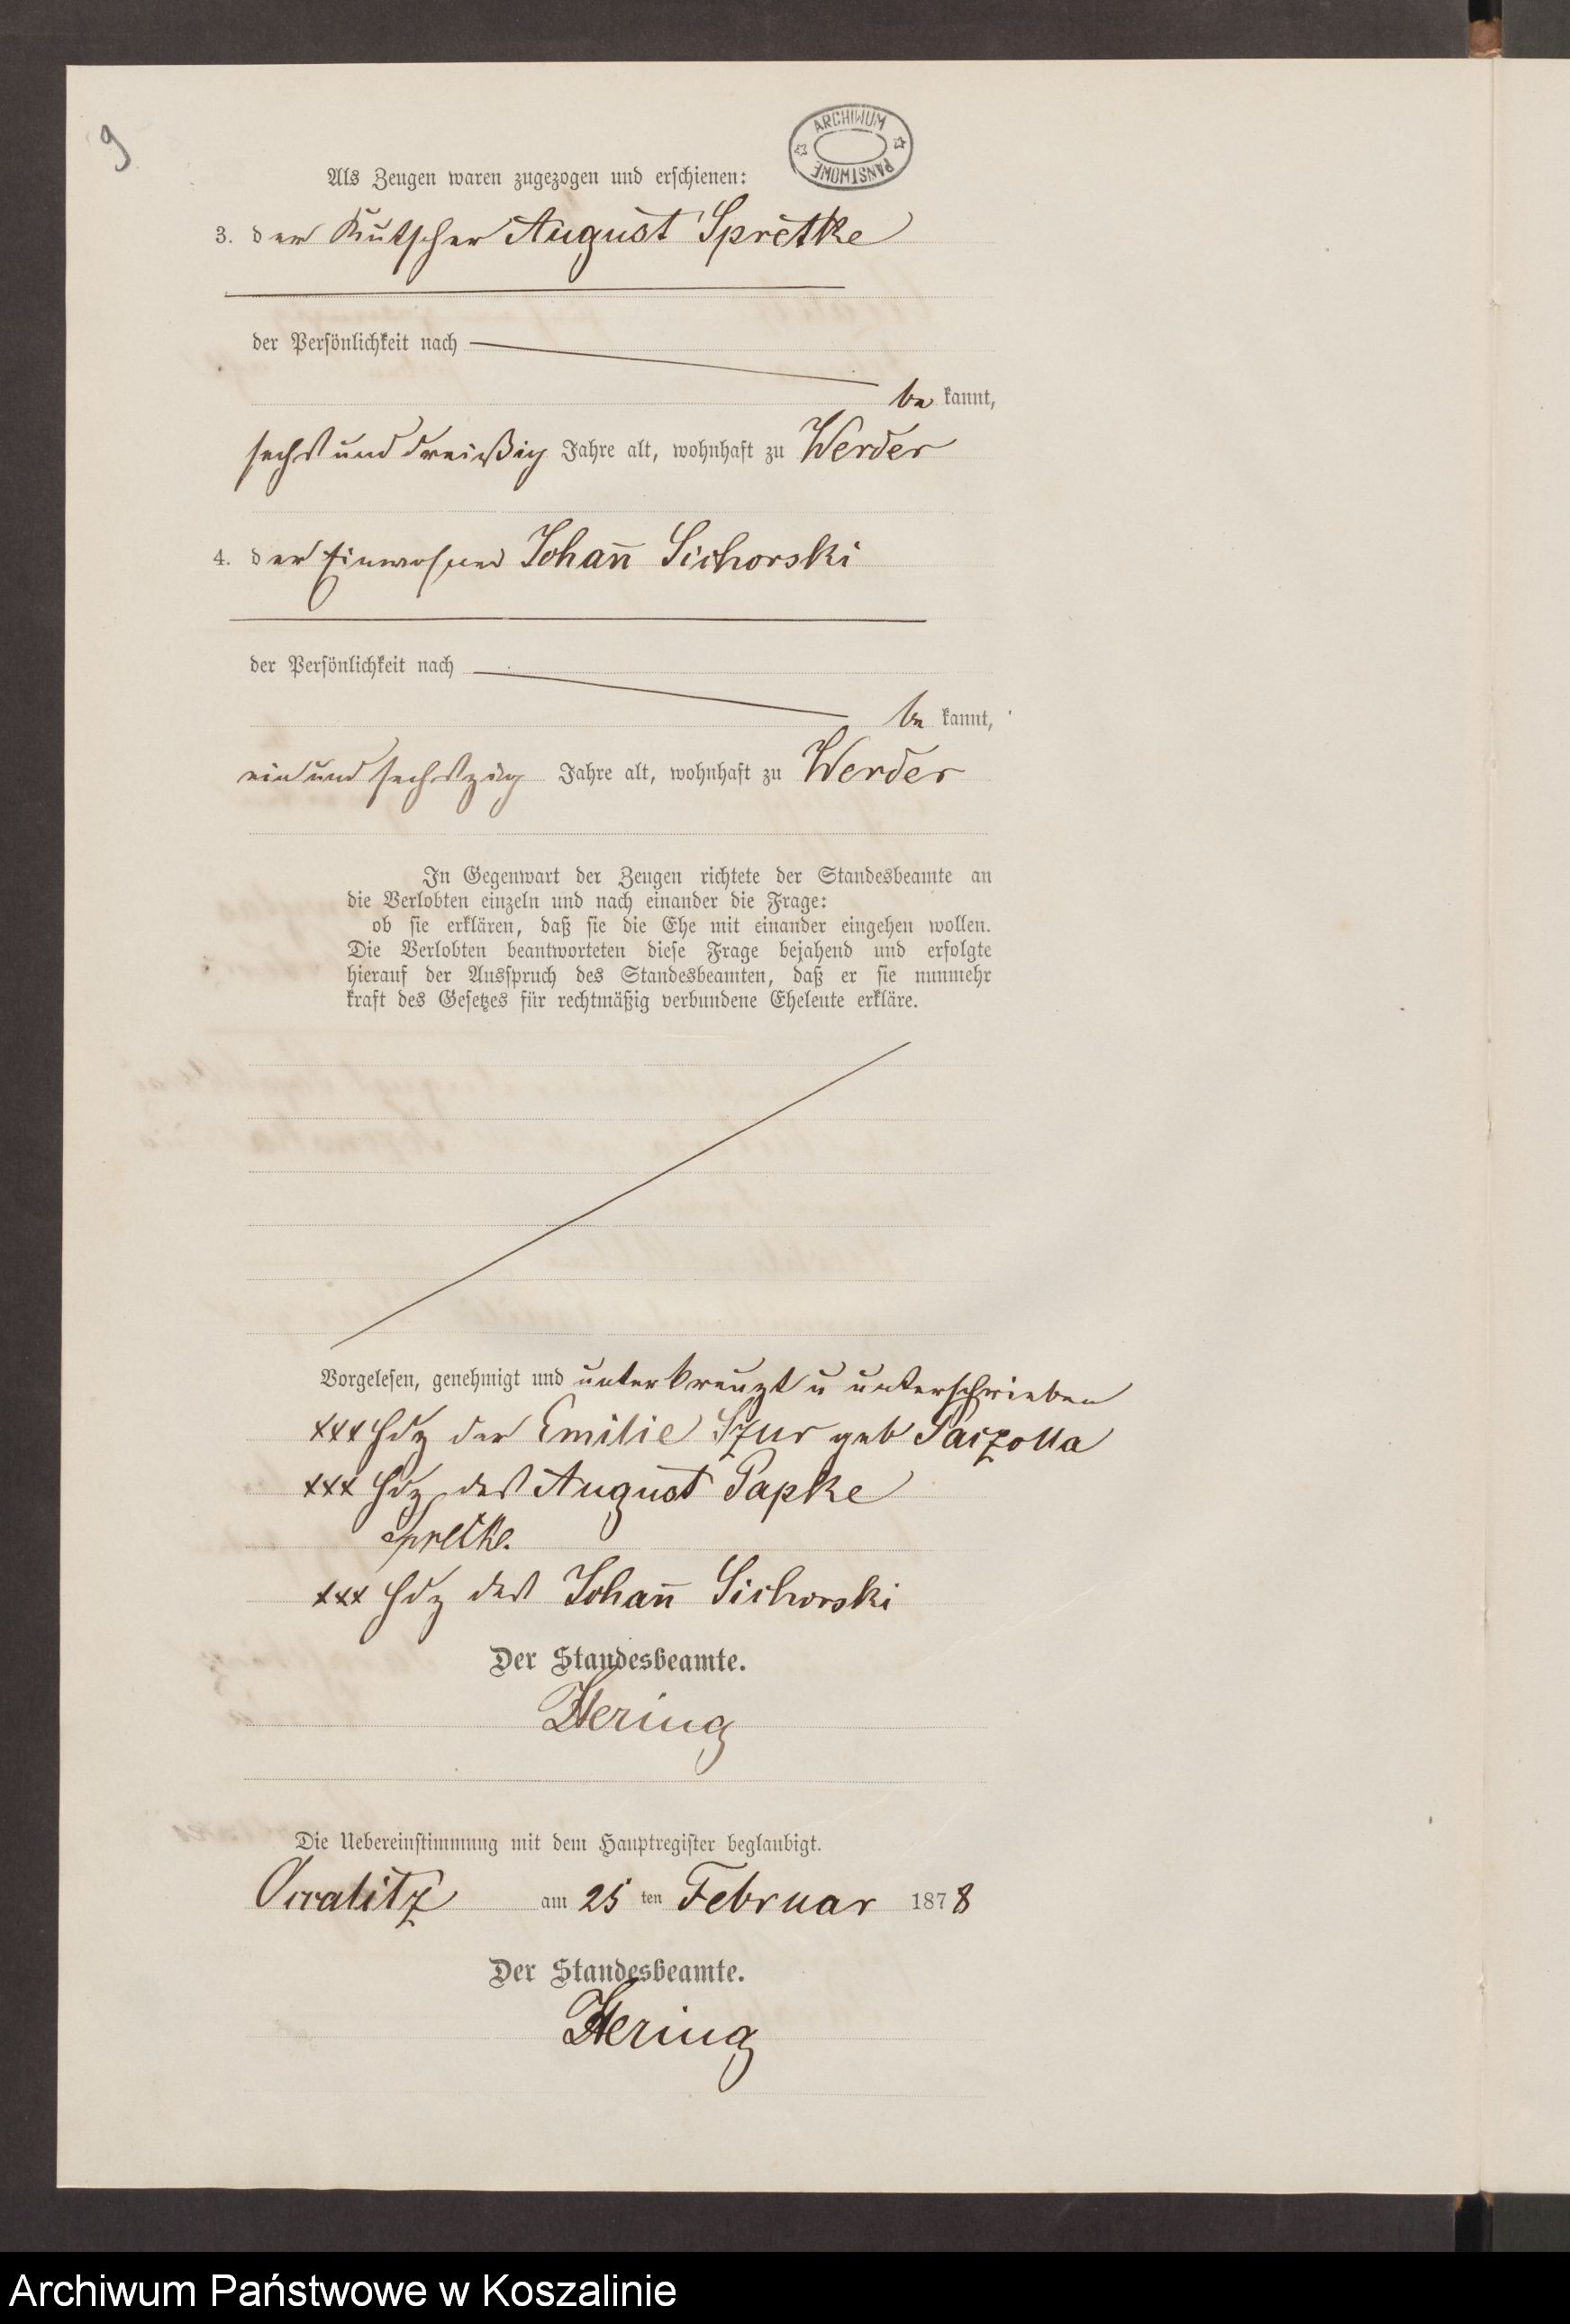 9
ARCHIWUM PAŃSTWOWE
Als Zeugen waren zugezogen und erschienen:
3. der Kutscher August Spretke
der Persönlichkeit nach
be kannt,
sechs und dreißig Jahre alt, wohnhaft zu Werder
4. der Einwohner Johan̄ Sichorski
der Persönlichkeit nach
be kannt,
ein und sechszig Jahre alt, wohnhaft zu Werder
In Gegenwart der Zeugen richtete der Standesbeamte an
die Verlobten einzeln und nach einander die Frage:
ob sie erklären, daß sie die Ehe mit einander eingehen wollen.
Die Verlobten beantworteten diese Frage bejahend und erfolgte
hierauf der Ausspruch des Standesbeamten, daß er sie nunmehr
kraft des Gesetzes für rechtmäßig verbundene Eheleute erkläre.
Vorgelesen, genehmigt und unterkreuzt u unterschrieben
xxx Hdz der Emilie Szur geb
xxx Hdz des August Papke
Spretke.
xxx Hdz des Johan̄ Sichorski
Der Standesbeamte.
Hering
Die Uebereinstimmung mit dem Hauptregister beglaubigt.
am 25 ten Februar 1878
Der Standesbeamte.
Hering
Archiwum Państwowe w Koszalinie